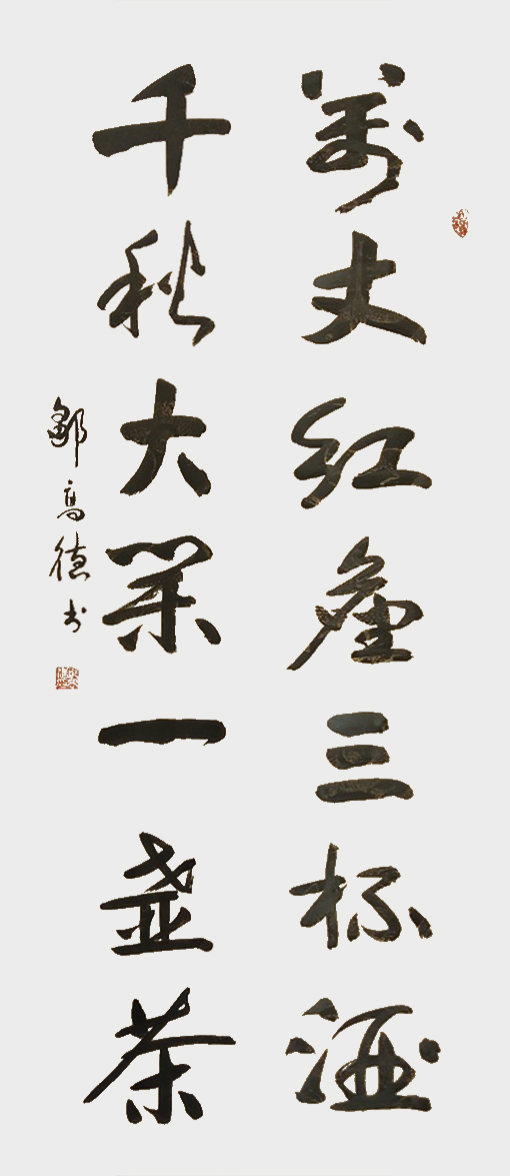 萬丈红塵三杯酒
千秋大業一盞茶
鄒高德书